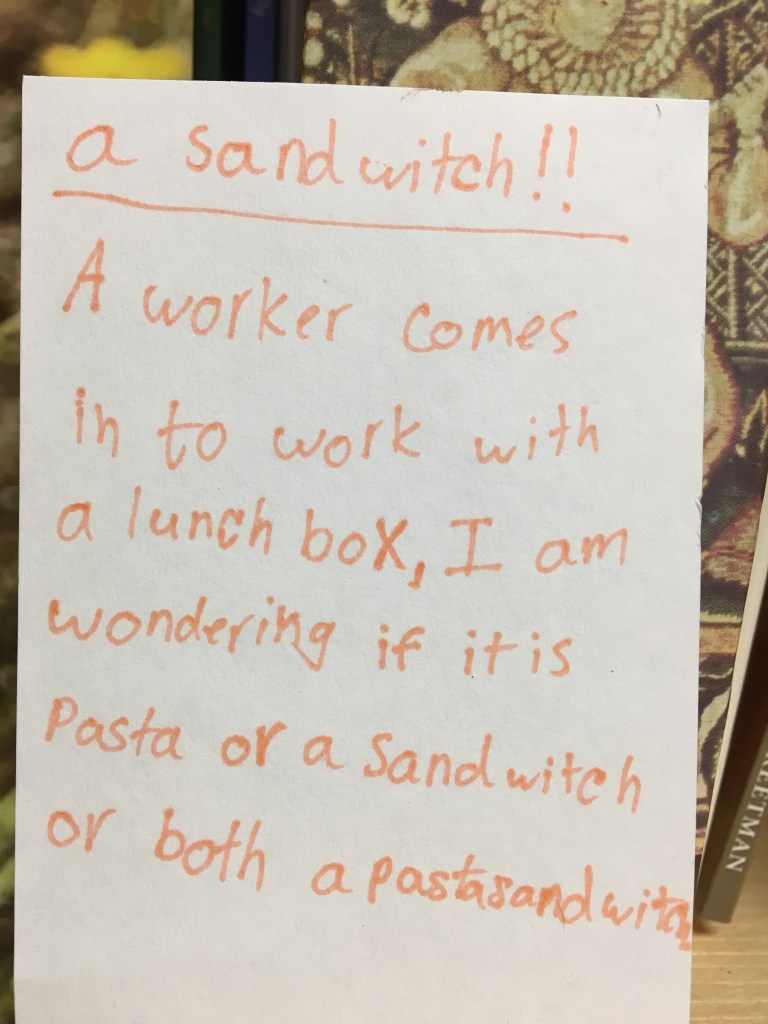 a sandwitch!!
A worker comes
in to work with
a lunch box, I am
wondering if it is
Pasta or a Sandwitch
or both a pastasandwitch
REETMAN